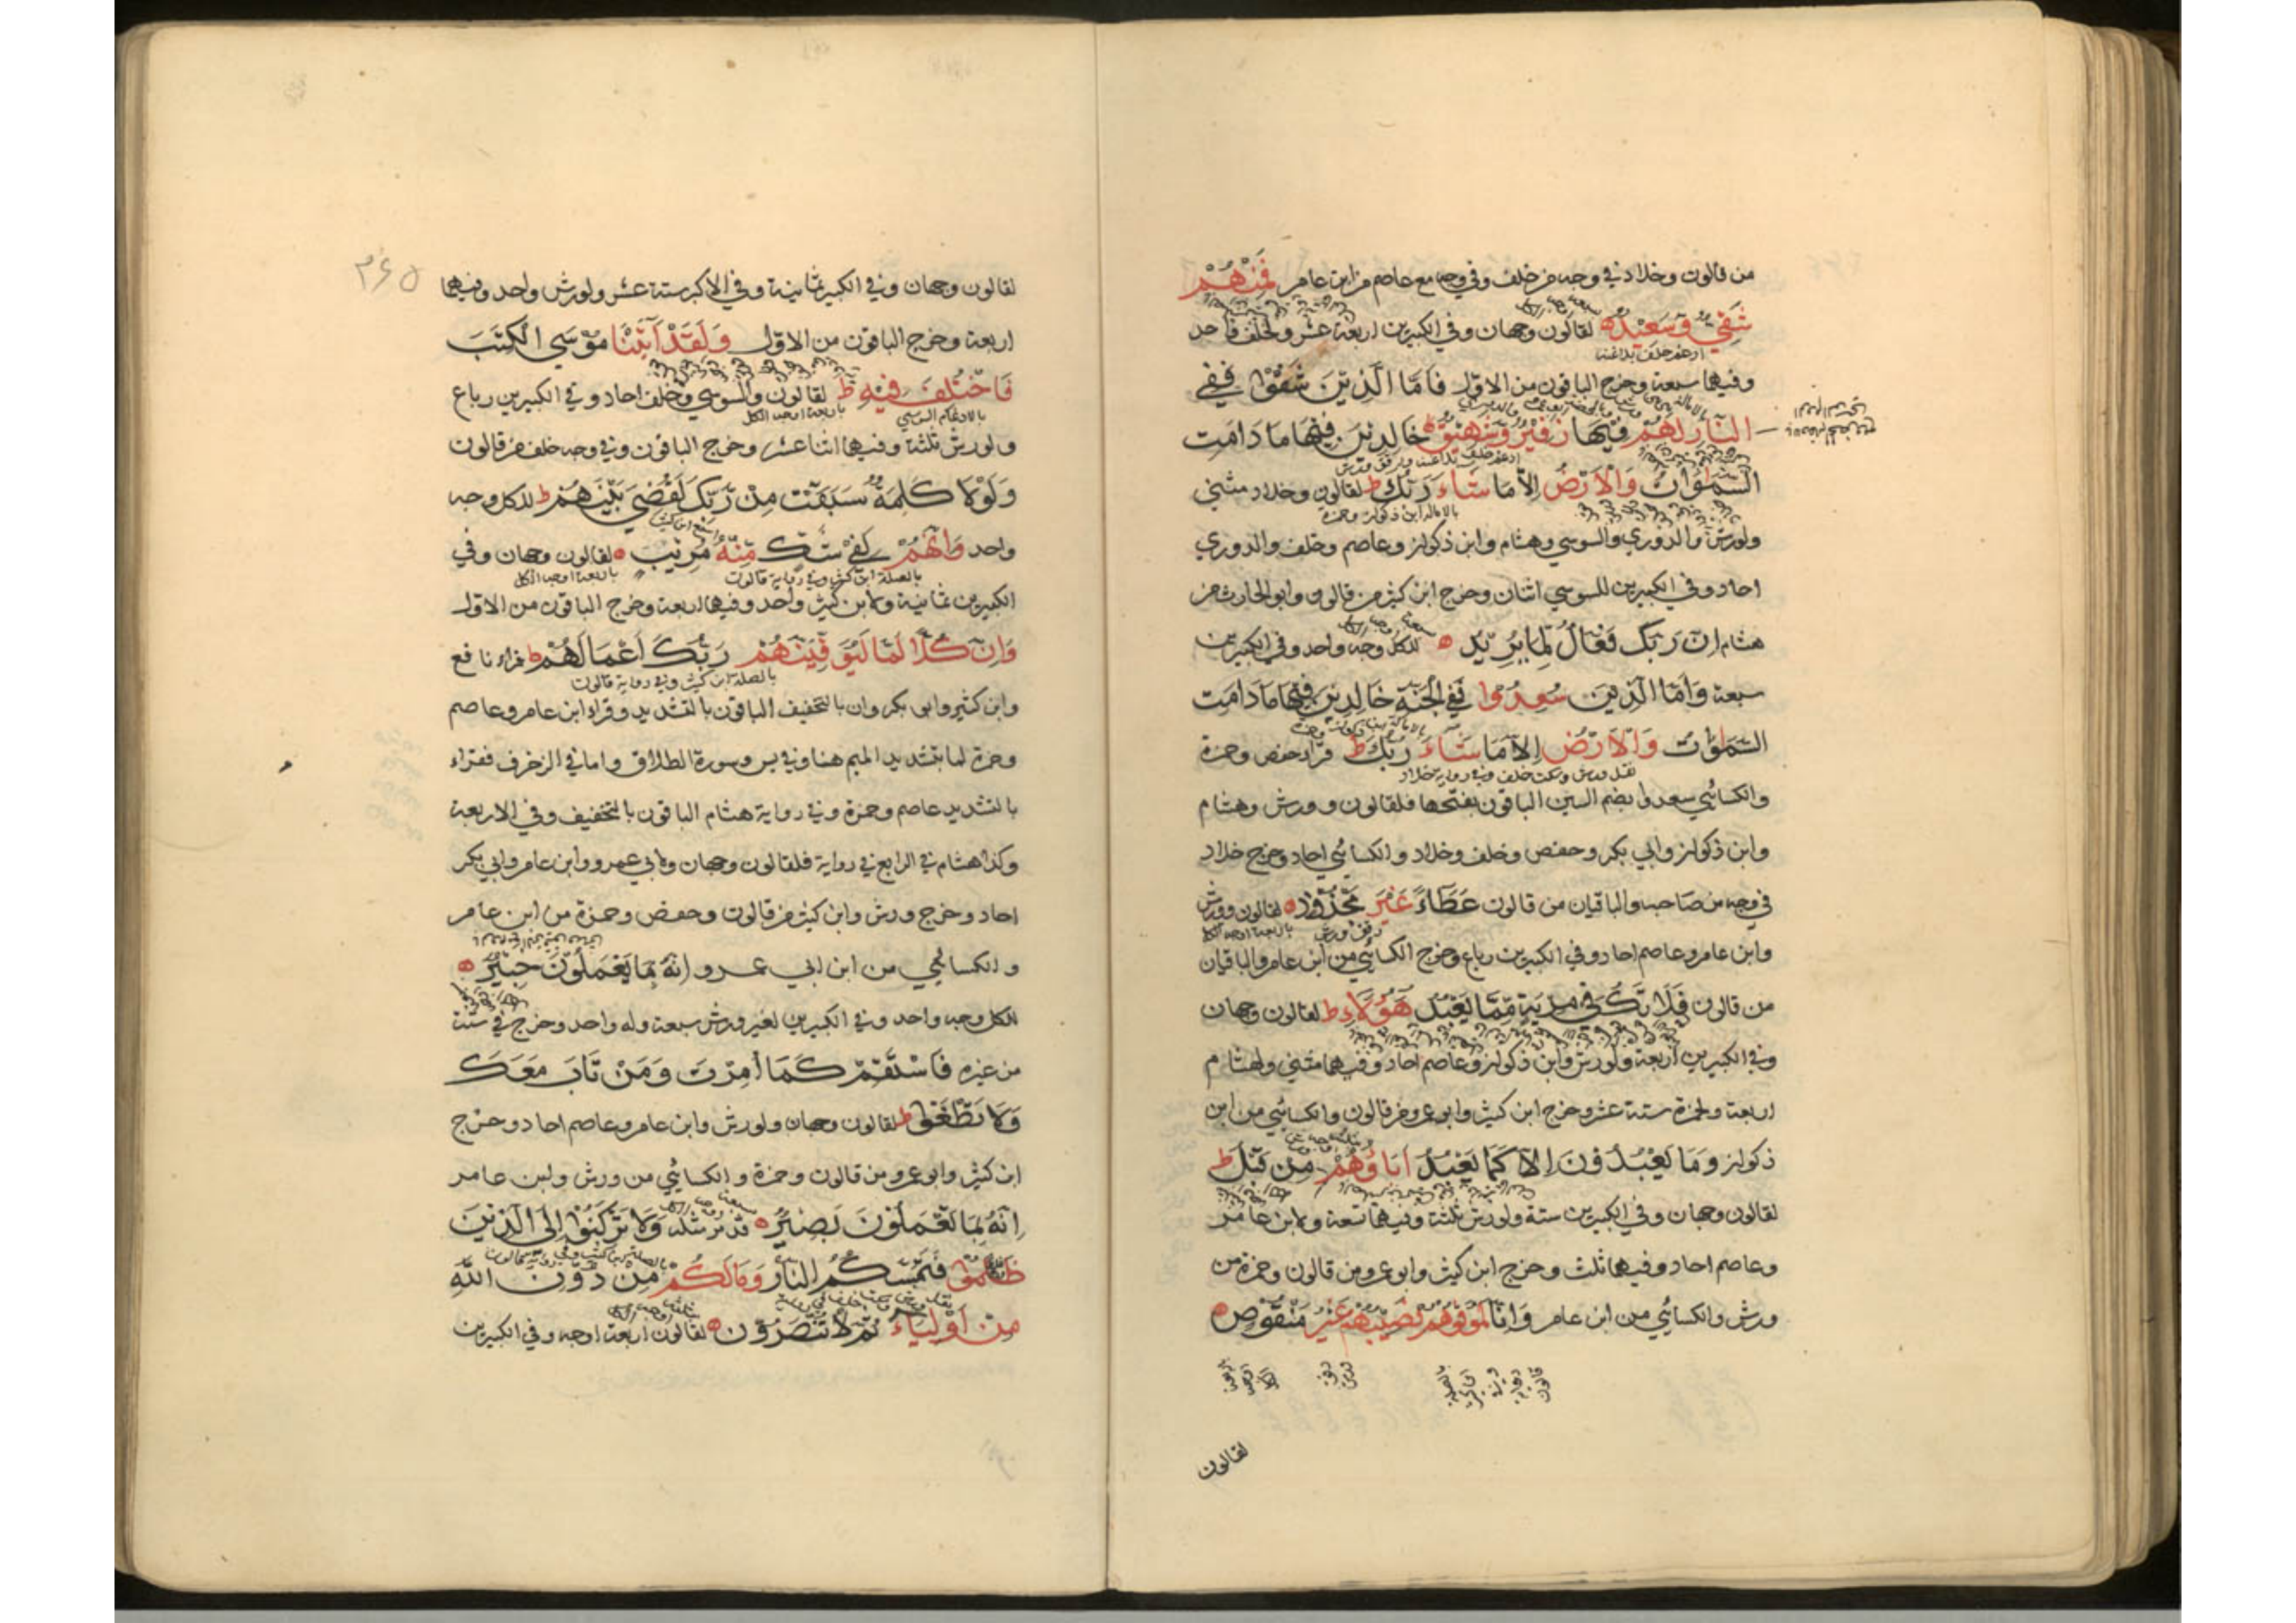 من قالون وخلاد في وجه من خلف وفي وجه مع عاصم من ابن عامر فَمِنْهُمْ
شَقِيٌّ وَسَعِيدٌ لقالون وجهان وفي الكبيرين اربعة عشر ولخلف واحد
وفيهما سبعة وخرج الباقون من الاول فَاَمَّا الَّذِينَ شَقُوا فَفِي
النَّارِ لَهُمْ فِيهَا زَفِيرٌ وَشَهِيقٌ خَالِدِينَ فِيهَا مَا دَامَتِ
السَّمٰوَاتُ وَالْاَرْضُ اِلَّا مَا شَاءَ رَبُّكَ ط لقالون وخلاد مثنى
ولورش والدوري والسوسي وهشام وابن ذكوان وعاصم وخلف والدوري
احاد وفي الكبيرين للسوسي اثنان وخرج ابن كثير من قالون وابو الحارث من
هشام اِنَّ رَبَّكَ فَعَّالٌ لِمَا يُرِيدُ للكل وجه واحد وفي الكبيرين
سبعة وَاَمَّا الَّذِينَ سُعِدُوا فَفِي الْجَنَّةِ خَالِدِينَ فِيهَا مَا دَامَتِ
السَّمٰوَاتُ وَالْاَرْضُ اِلَّا مَا شَاءَ رَبُّكَ ط قرا حفص وحمزة
والكسائي سعدوا بضم السين الباقون بفتحها فلقالون وورش وهشام
وابن ذكوان وابي بكر وحفص وخلف وخلاد والكسائي احاد وخرج خلاد
في وجه من صاحبه والباقيان من قالون عَطَاءً غَيْرَ مَجْذُوذٍ لقالون وورش
وابن عامر وعاصم احاد وفي الكبيرين رباع وخرج الكسائي من ابن عامر والباقيان
من قالون فَلَا تَكُ فِي مِرْيَةٍ مِمَّا يَعْبُدُ هٰؤُلَاءِ ط لقالون وجهان
وفي الكبيرين اربعة ولورش وابن ذكوان وعاصم احاد وفيهما مثنى ولهشام
اربعة ولحمزة ستة عشر وخرج ابن كثير وابو عمرو من قالون والكسائي من ابن
ذكوان وَمَا يَعْبُدُونَ اِلَّا كَمَا يَعْبُدُ اٰبَاؤُهُمْ مِنْ قَبْلُ ط
لقالون وجهان وفي الكبيرين ستة ولورش ثلثة وفيهما تسعة ولابن عامر
وعاصم احاد وفيهما ثلث وخرج ابن كثير وابو عمرو من قالون وحمزة من
ورش والكسائي من ابن عامر وَاِنَّا لَمُوَفُّوهُمْ نَصِيبَهُمْ غَيْرَ مَنْقُوصٍ
لقالون
٣٦٥
لقالون وجهان وفي الكبير ثمانية وفي الاكبر ستة عشر ولورش واحد وفيهما
اربعة وخرج الباقون من الاول وَلَقَدْ اٰتَيْنَا مُوسَى الْكِتٰبَ
فَاخْتُلِفَ فِيهِ ط لقالون والسوسي وخلف احاد وفي الكبيرين رباع
ولورش ثلثة وفيهما اثنا عشر وخرج الباقون وفي وجه خلف من قالون
وَلَوْلَا كَلِمَةٌ سَبَقَتْ مِنْ رَبِّكَ لَقُضِيَ بَيْنَهُمْ ط للكل وجه
واحد وَاِنَّهُمْ لَفِي شَكٍّ مِنْهُ مُرِيبٍ لقالون وجهان وفي
بالصلة ابن كثير وفي رواية قالون
الكبيرين ثمانية ولابن كثير واحد وفيهما اربعة وخرج الباقون من الاول
وَاِنَّ كُلًّا لَمَّا لَيُوَفِّيَنَّهُمْ رَبُّكَ اَعْمَالَهُمْ ط قراء نافع
بالصلة ابن كثير وفي رواية قالون
وابن كثير وابو بكر وان بالتخفيف الباقون بالتشديد وقراء ابن عامر وعاصم
وحمزة لما بتشديد الميم هنا وفي يس وسورة الطلاق واما في الزخرف فقراء
بالتشديد عاصم وحمزة وفي رواية هشام الباقون بالتخفيف وفي الاربعة
وكذا هشام في الرابع في رواية فلقالون وجهان ولابي عمرو وابن عامر وابي بكر
احاد وخرج ورش وابن كثير من قالون وحفص وحمزة من ابن عامر
والكسائي من ابن ابي عمرو اِنَّهُ بِمَا يَعْمَلُونَ خَبِيرٌ
للكل وجه واحد وفي الكبيرين لغير ورش سبعة وله واحد وخرج في ستة
من غيره فَاسْتَقِمْ كَمَا اُمِرْتَ وَمَنْ تَابَ مَعَكَ
وَلَا تَطْغَوْا ط لقالون وجهان ولورش وابن عامر وعاصم احاد وخرج
ابن كثير وابو عمرو من قالون وحمزة والكسائي من ورش وابن عامر
اِنَّهُ بِمَا تَعْمَلُونَ بَصِيرٌ قد مر مثله وَلَا تَرْكَنُوا اِلَى الَّذِينَ
ظَلَمُوا فَتَمَسَّكُمُ النَّارُ وَمَا لَكُمْ مِنْ دُونِ اللّٰهِ
مِنْ اَوْلِيَاءَ ثُمَّ لَا تُنْصَرُونَ لقالون اربعة اوجه وفي الكبيرين